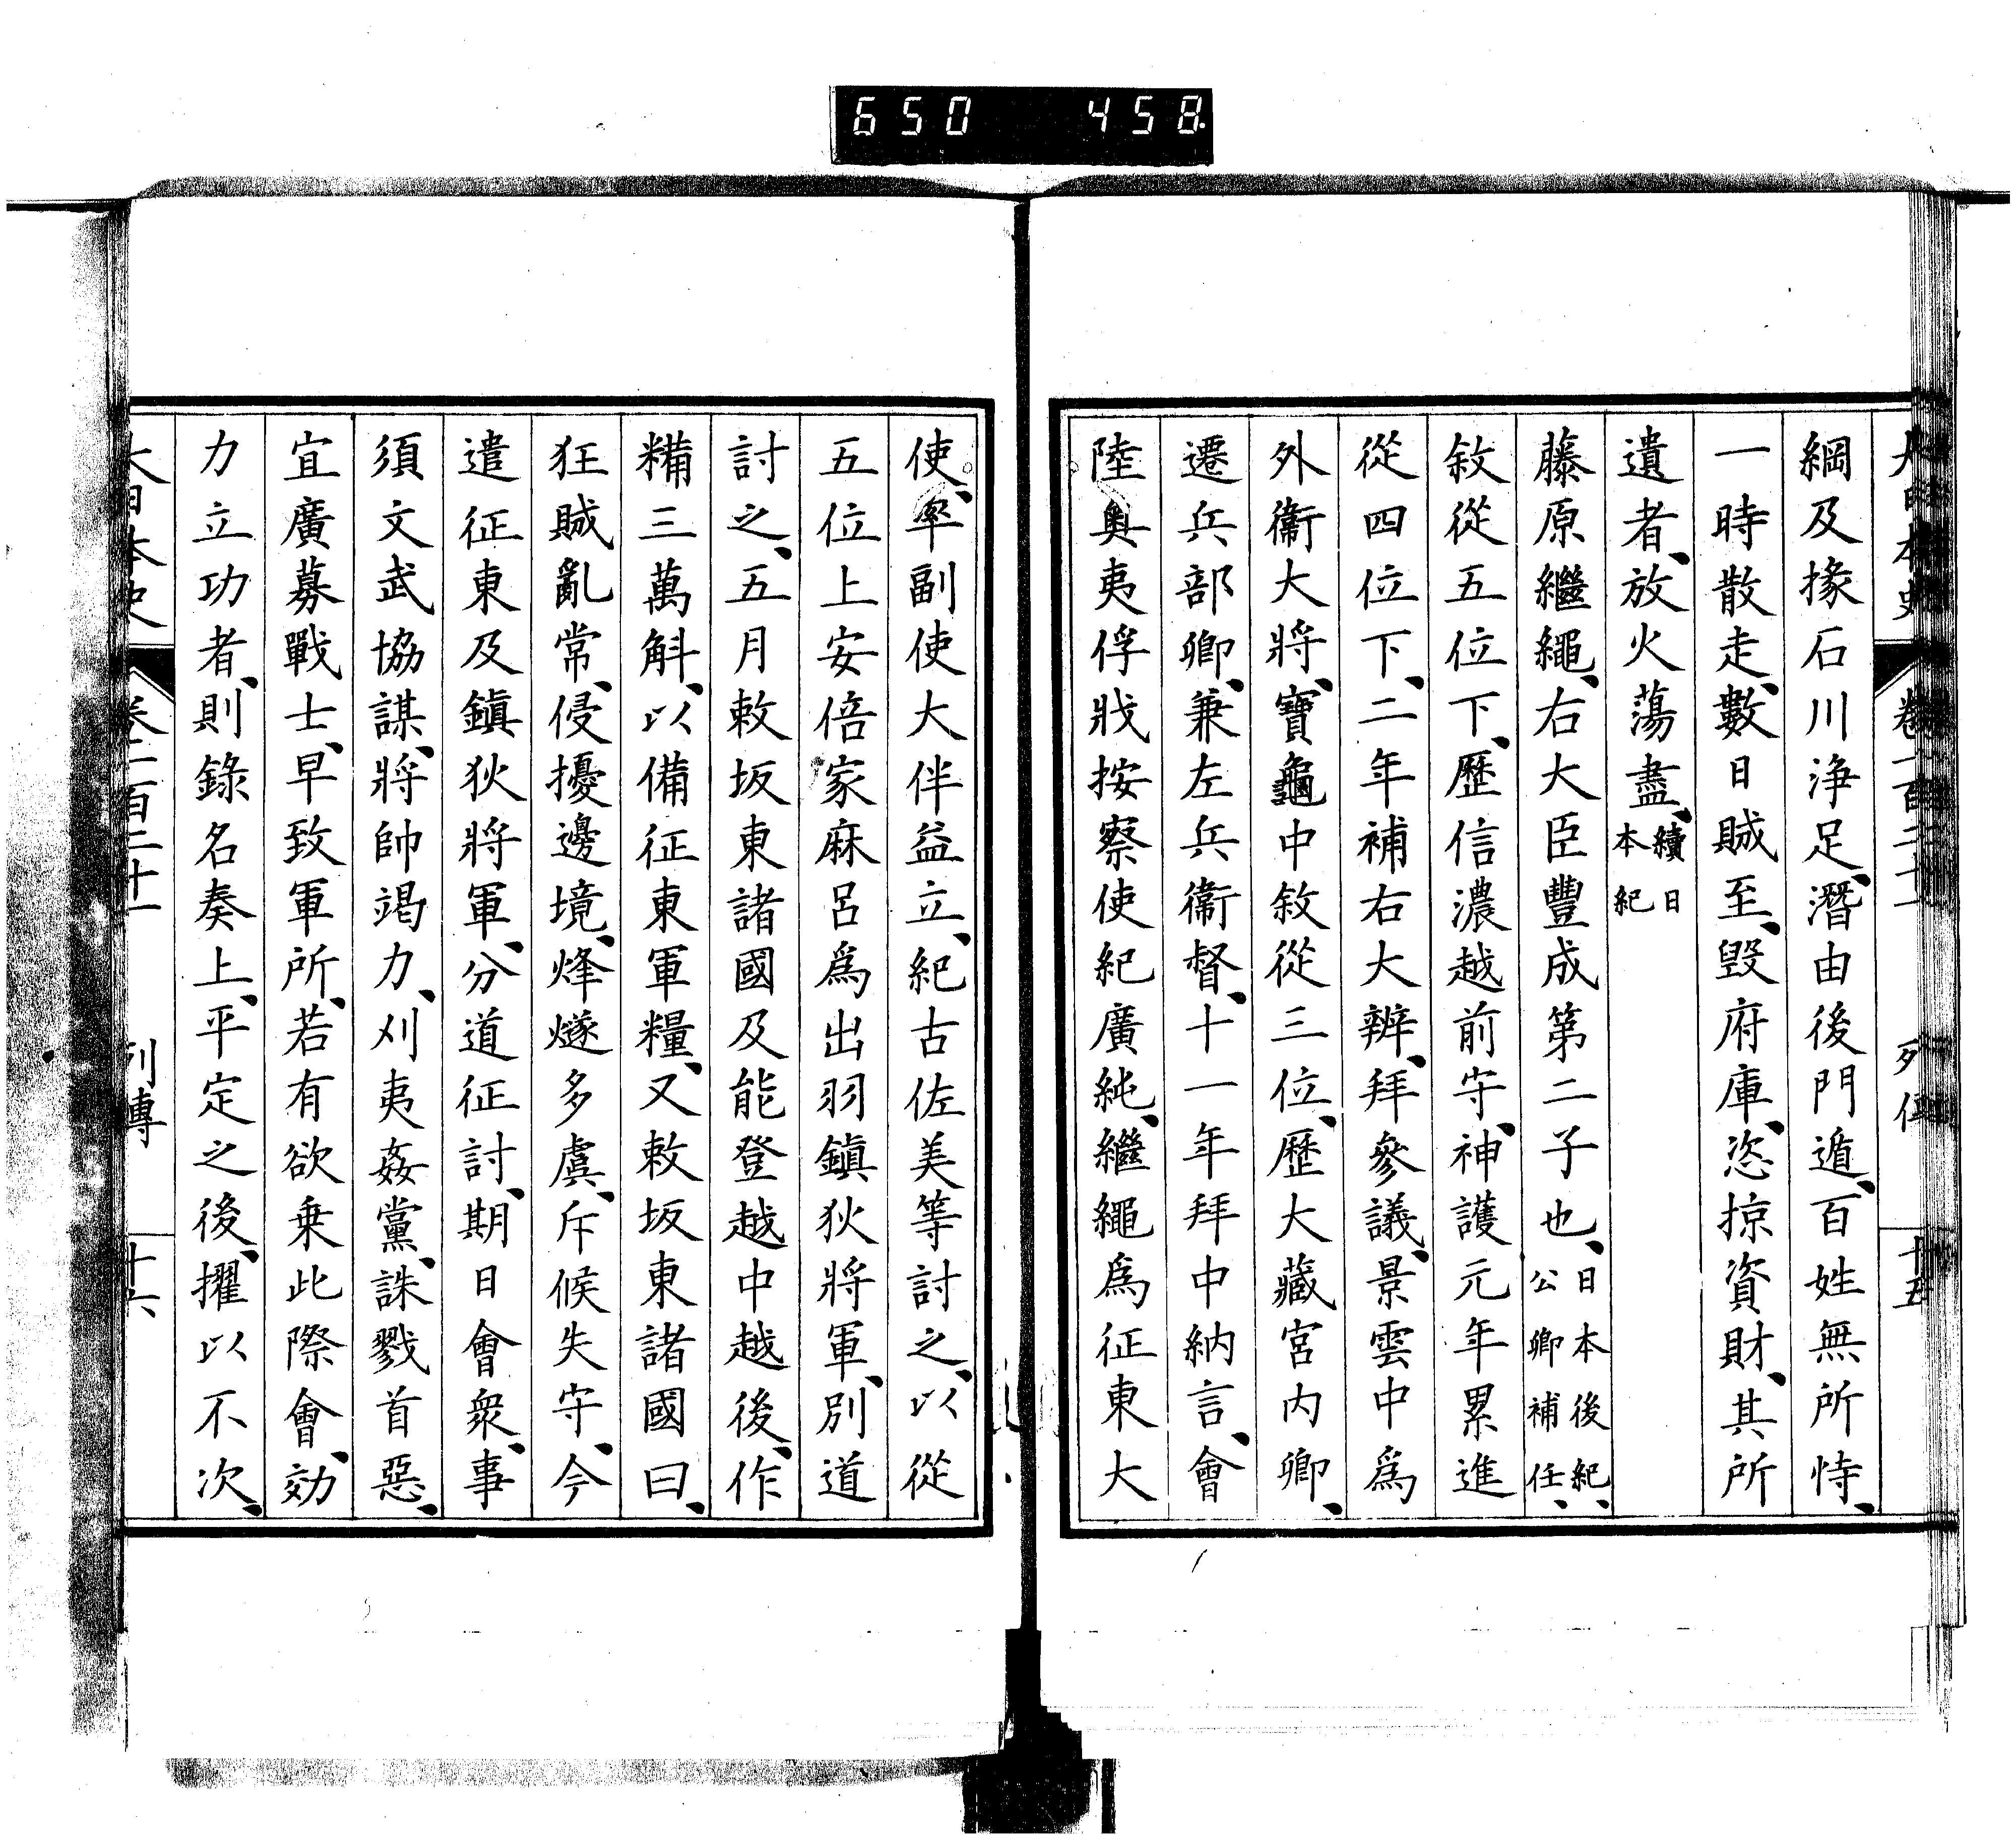 650 458
綱及掾石川淨足、潛由後門遁、百姓無所恃、
一時散走、數日賊至、毀府庫、恣掠資財、其所
遺者、放火蕩盡、續日本紀
藤原繼繩、右大臣豐成第二子也、日本後紀、公卿補任、
敘從五位下、歷信濃越前守、神護元年累進
從四位下、二年補右大辨、拜參議、景雲中爲
外衞大將、寶龜中敘從三位、歷大藏宮内卿、
遷兵部卿、兼左兵衞督、十一年拜中納言、會
陸奧夷俘戕按察使紀廣純、繼繩爲征東大
使、率副使大伴益立、紀古佐美等討之、以從
五位上安倍家麻呂爲出羽鎭狄將軍、別道
討之、五月敕坂東諸國及能登越中越後、作
糒三萬斛、以備征東軍糧、又敕坂東諸國曰、
狂賊亂常、侵擾邊境、烽燧多虞、斥候失守、今
遣征東及鎭狄將軍、分道征討、期日會衆、事
須文武協謀、將帥竭力、刈夷姦黨、誅戮首惡、
宜廣募戰士、早致軍所、若有欲乗此際會、効
力立功者、則錄名奏上、平定之後、擢以不次、
大日本史 卷一百二十一 列傳 十六